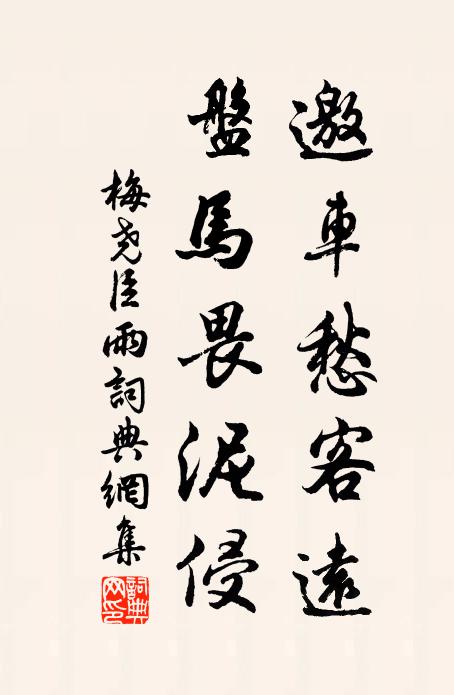 邀車愁客遠
盤馬畏泥侵
梅堯臣雨詞典網集
詞典網印